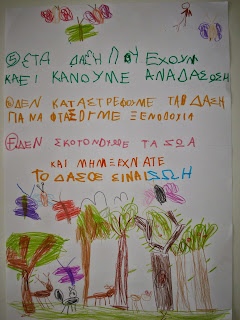 ⑤ΣΤΑ ΔΑΣΗ ΠΟΥ ΕΧΟΥΝ
ΚΑΕΙ ΚΑΝΟΥΜΕ ΑΝΑΔΑΣΩΣΗ
⑥ΔΕΝ ΚΑΤΑΣΤΡΕΦΟΥΜΕ ΤΑ ΔΑΣΗ
ΓΙΑ ΝΑ ΦΤΙΑΞΟΥΜΕ ΞΕΝΟΔΟΧΙΑ
⑦ΔΕΝ ΣΚΟΤΟΝΟΥΜΕ ΤΑ ΖΩΑ
ΚΑΙ ΜΗΝ ΞΕΧΝΑΤΕ
ΤΟ ΔΑΣΟΣ ΕΙΝΑΙ ΖΩΗ